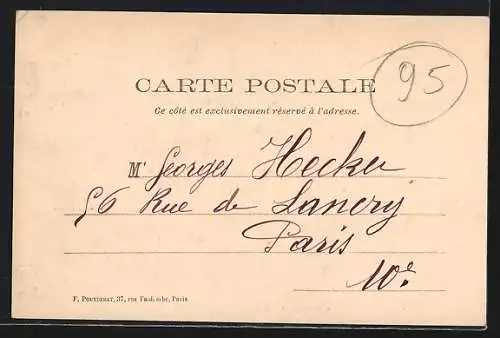 95
CARTE POSTALE
Ce côté est exclusivement réservé à l'adresse.
Mr Georges Hecker
56 Rue de Lancry
Paris
10e
37, rue Paris